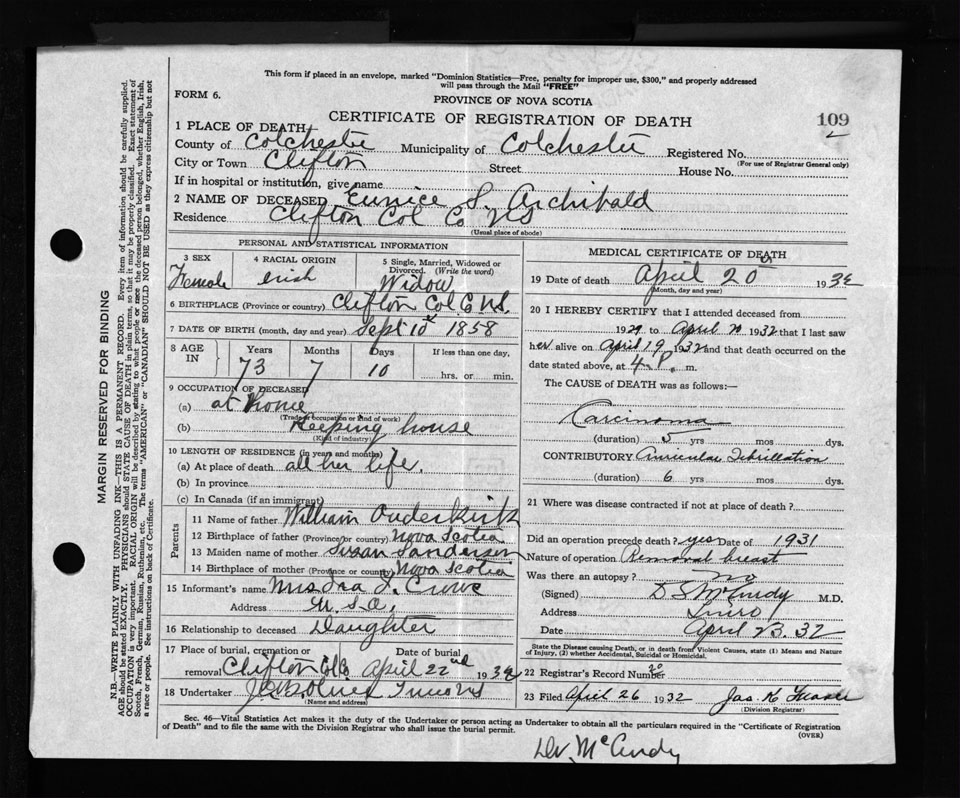 This form if placed in an envelope, marked "Dominion Statistics—Free, penalty for improper use, $300," and properly addressed
will pass through the Mail "FREE"
FORM 6.
PROVINCE OF NOVA SCOTIA
CERTIFICATE OF REGISTRATION OF DEATH
109
1 PLACE OF DEATH
County of Colchester Municipality of Colchester Registered No.
(For use of Registrar General only)
City or Town Clifton Street House No.
If in hospital or institution, give name
2 NAME OF DECEASED Eunice S. Archibald
Residence Clifton Col Co NS
(Usual place of abode)
PERSONAL AND STATISTICAL INFORMATION
3 SEX 4 RACIAL ORIGIN 5 Single, Married, Widowed or
Divorced. (Write the word)
Female Irish Widow
6 BIRTHPLACE (Province or country) Clifton Col. Co NS.
7 DATE OF BIRTH (month, day and year) Sept 10th 1858
8 AGE IN Years Months Days If less than one day,
73 7 10 hrs. or min.
9 OCCUPATION OF DECEASED
(a) at home
(Trade, occupation or kind of work)
(b) Keeping house
(Kind of industry)
10 LENGTH OF RESIDENCE (in years and months)
(a) At place of death all her life.
(b) In province
(c) In Canada (if an immigrant)
Parents
11 Name of father William Ouderkirk
12 Birthplace of father (Province or country) Nova Scotia
13 Maiden name of mother Susan Sanderson
14 Birthplace of mother (Province or country) Nova Scotia
15 Informant's name Mrs Ira J. Crowe
Address U.S.A.
16 Relationship to deceased Daughter
17 Place of burial, cremation or Date of burial
removal Clifton Col Co April 22nd 1932
18 Undertaker Truro NS
(Name and address)
MEDICAL CERTIFICATE OF DEATH
19 Date of death April 20 1932
(Month, day and year)
20 I HEREBY CERTIFY that I attended deceased from
1929 to April 20 1932 that I last saw
her alive on April 19 1932 and that death occurred on the
date stated above, at 4 P. m.
The CAUSE of DEATH was as follows:
Carcinoma
(duration) 5 yrs mos dys.
CONTRIBUTORY Auricular Fibrillation
(duration) 6 yrs. mos. dys.
21 Where was disease contracted if not at place of death?
Did an operation precede death? yes Date of 1931
Nature of operation Removal breast
Was there an autopsy? no
(Signed) D S McCurdy M.D.
Address Truro
Date April 23. 32
State the Disease causing Death, or in death from Violent Causes, state (1) Means and Nature of
Injury, (2) whether Accidental, Suicidal or Homicidal.
22 Registrar's Record Number 20
23 Filed April 26 1932 Jas K
(Division Registrar)
Sec. 46—Vital Statistics Act makes it the duty of the Undertaker or person acting as Undertaker to obtain all the particulars required in the "Certificate of Registration
of Death" and to file the same with the Division Registrar who shall issue the burial permit.
(OVER)
Dr. McCurdy
MARGIN RESERVED FOR BINDING
N.B.—WRITE PLAINLY WITH UNFADING INK—THIS IS A PERMANENT RECORD. Every item of information should be carefully supplied.
AGE should be stated EXACTLY. PHYSICIANS should STATE CAUSE OF DEATH in plain terms, so that it may be properly classified. Exact statement of
OCCUPATION is very important. RACIAL ORIGIN will be described by stating to what people or race the deceased person belonged, whether English, Irish,
Scotch, French, German, Russian, Ruthenian, etc. The terms "AMERICAN" or "CANADIAN" SHOULD NOT BE USED as they express citizenship but not
a race or people. See instructions on back of Certificate.